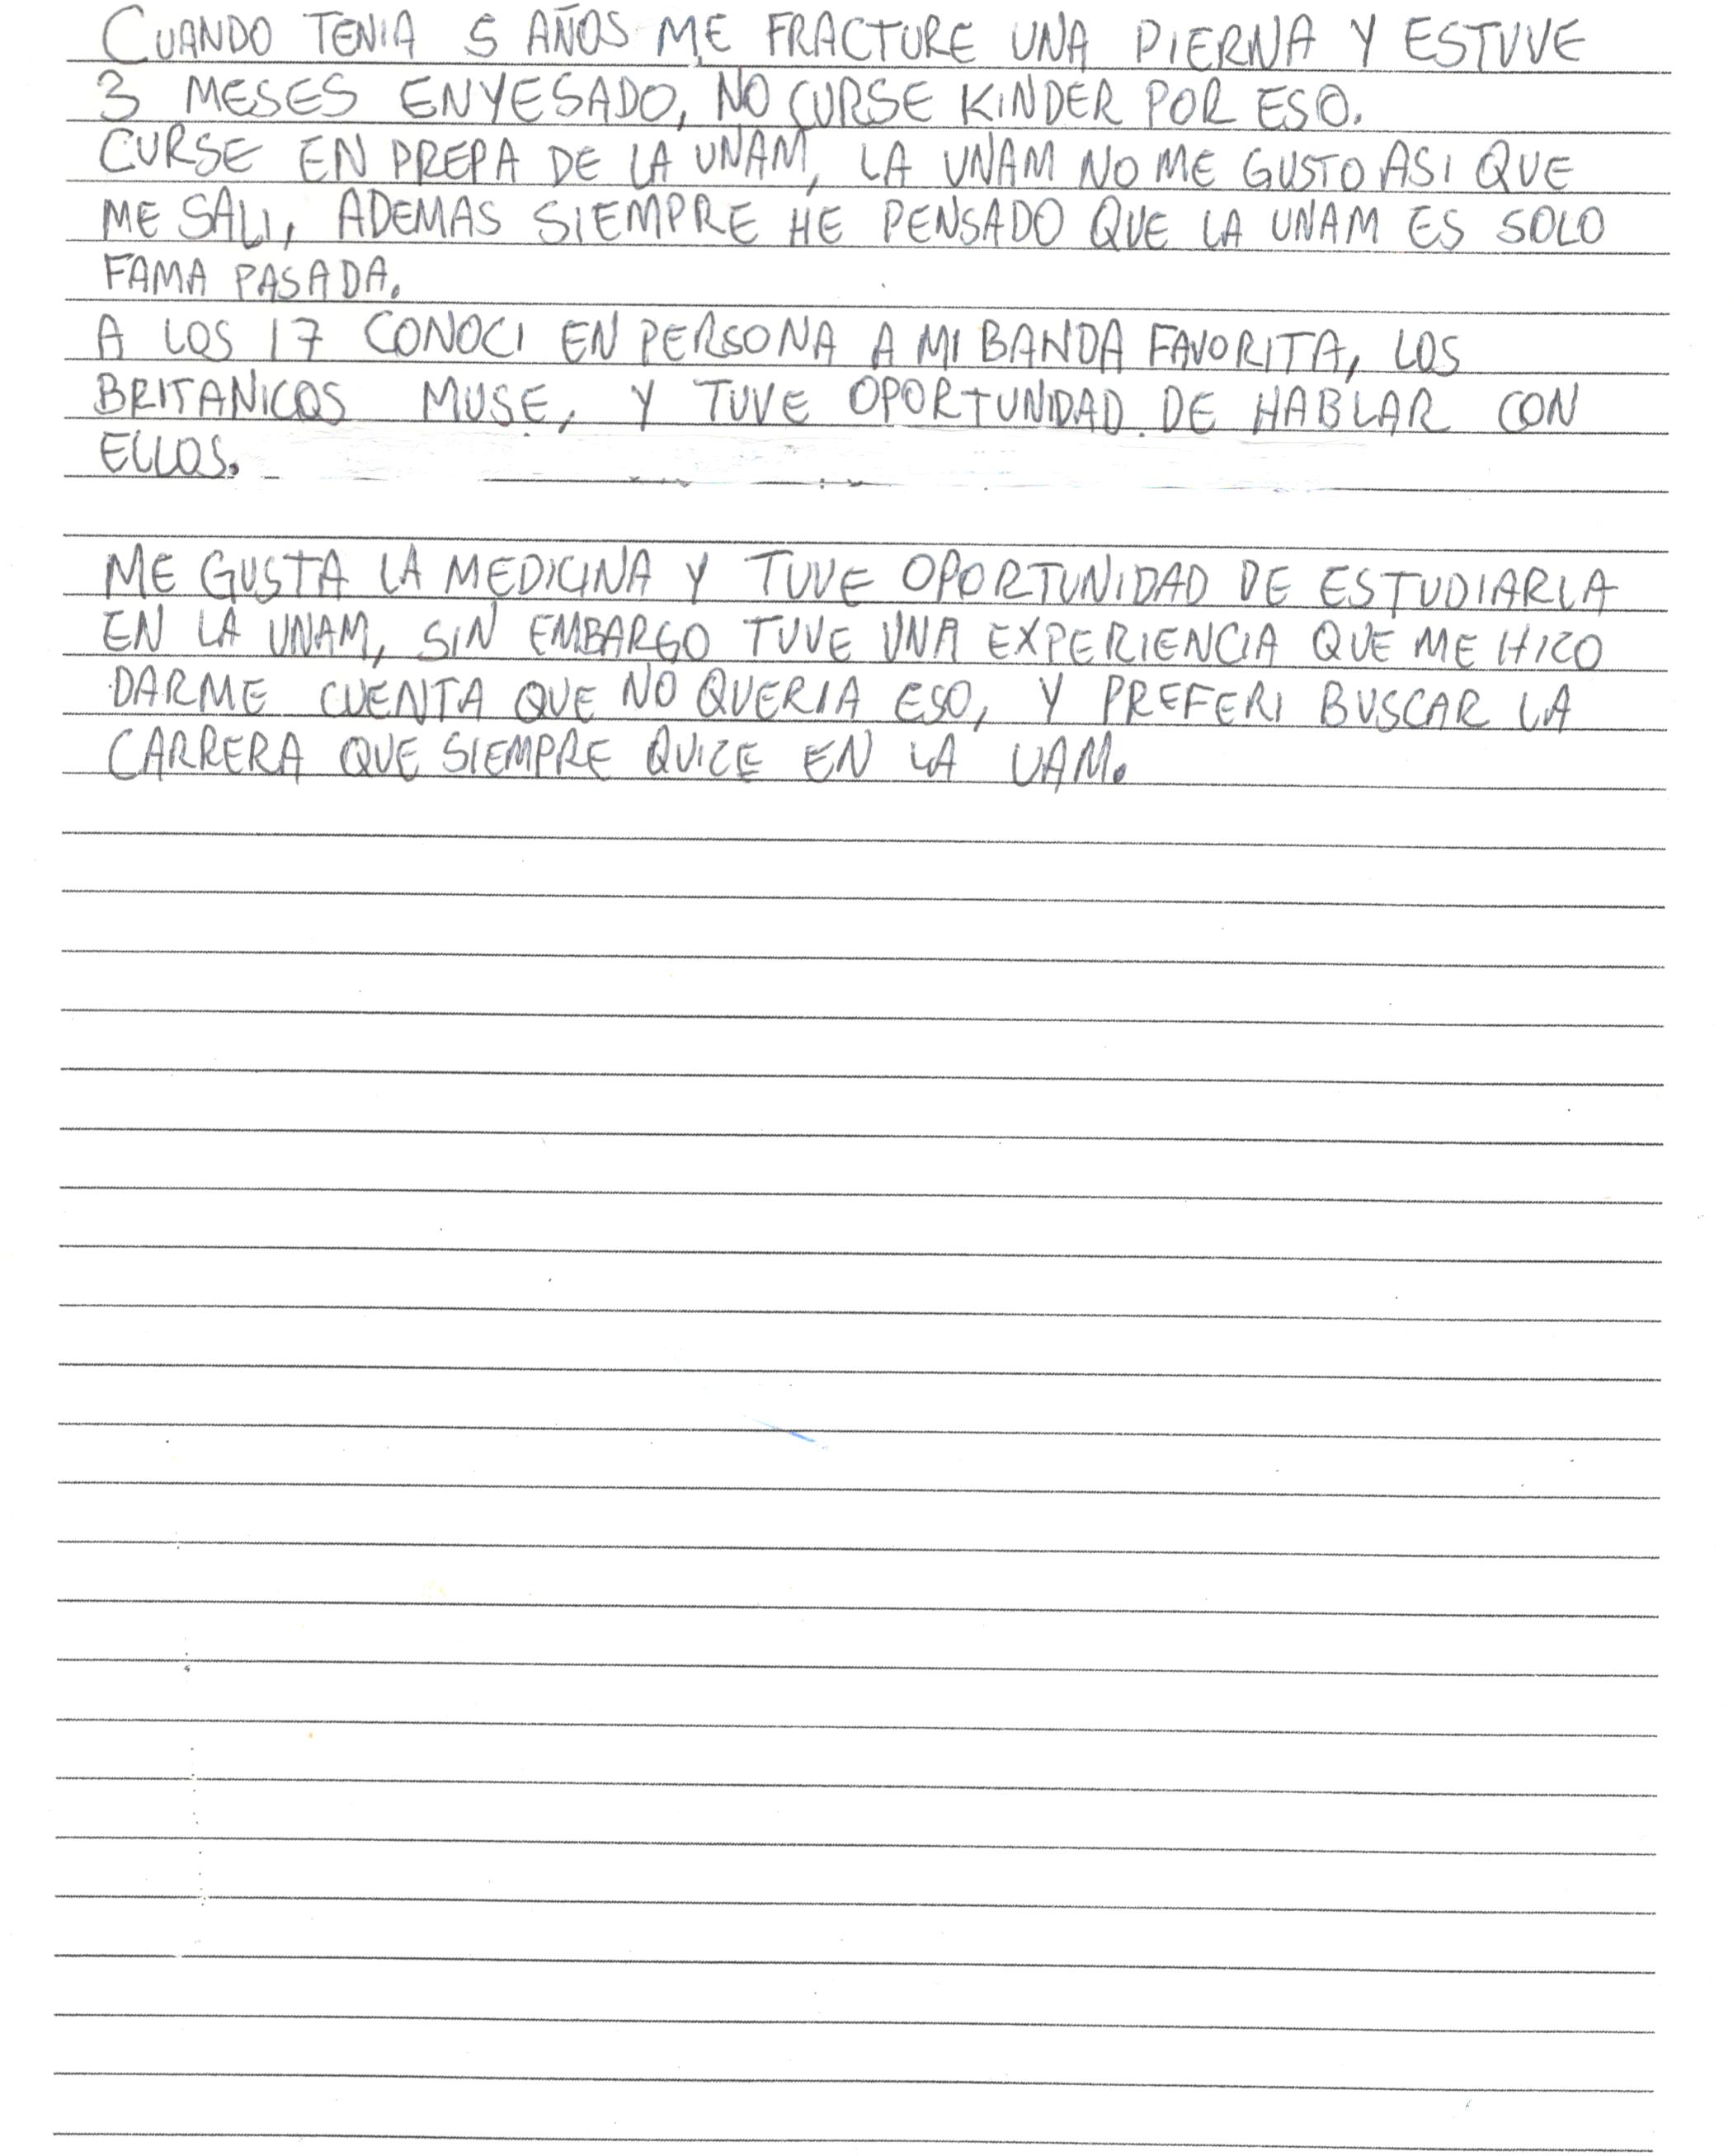 CUANDO TENIA 5 AÑOS ME FRACTURE UNA PIERNA Y ESTUVE
3 MESES ENYESADO, NO CURSE KINDER POR ESO.
CURSE EN PREPA DE LA UNAM, LA UNAM NO ME GUSTO ASI QUE
ME SALI, ADEMAS SIEMPRE HE PENSADO QUE LA UNAM ES SOLO
FAMA PASADA.
A LOS 17 CONOCI EN PERSONA A MI BANDA FAVORITA, LOS
BRITANICOS MUSE, Y TUVE OPORTUNIDAD DE HABLAR CON
ELLOS.
ME GUSTA LA MEDICINA Y TUVE OPORTUNIDAD DE ESTUDIARLA
EN LA UNAM, SIN EMBARGO TUVE UNA EXPERIENCIA QUE ME HIZO
DARME CUENTA QUE NO QUERIA ESO, Y PREFERI BUSCAR LA
CARRERA QUE SIEMPRE QUIZE EN LA UAM.